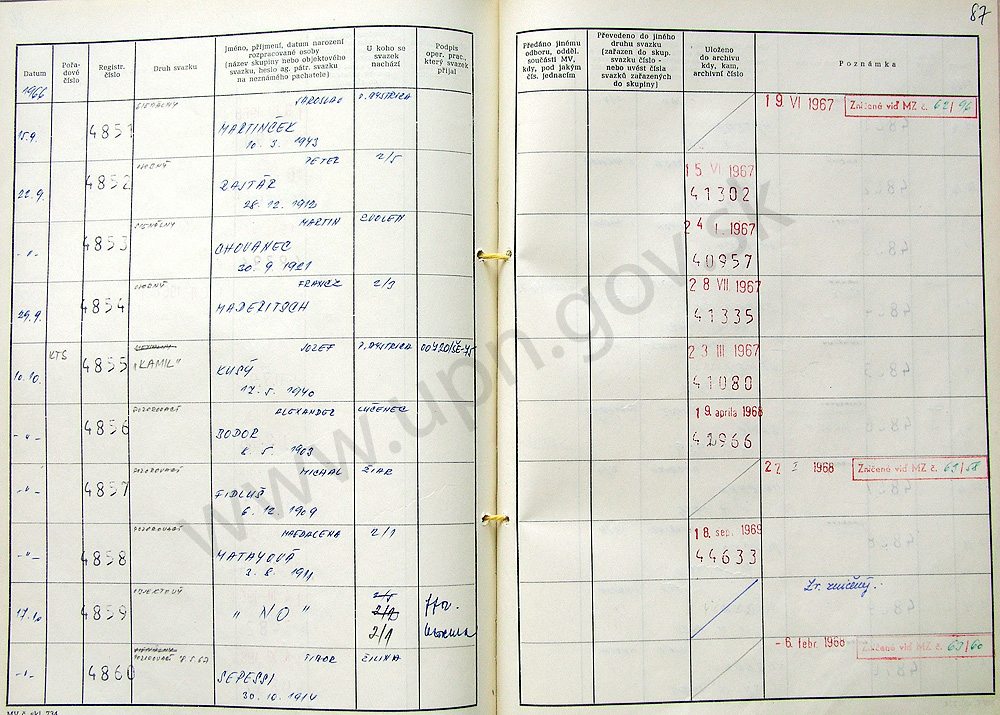 87
Datum
Pořa-
dové
číslo
Registr.
číslo
Druh svazku
Jméno, příjmení, datum narození
rozpracované osoby
(název skupiny nebo objektového
svazku, heslo ag. pátr. svazku
na neznámého pachatele)
U koho se
svazek
nachází
Podpis
oper. prac.,
který svazek
přijal
Předáno jinému
odboru, odděl.
součásti MV,
kdy, pod jakým
čís. jednacím
Převedeno do jiného
druhu svazku
(zařazen do skup.
svazku číslo -
nebo uvést čísla
svazků zařazených
do skupiny)
Uloženo
do archivu
kdy, kam,
archivní číslo
Poznámka
1966
SIGNÁLNY JAROSLAV B. BYSTRICA 19 VI 1967 Zničené viď MZ č. 62/96
15.9. 4851 MARTINČEK
10. 3. 1943
OSOBNÝ PETER 2/5 15 VI 1967
22.9. 4852 41302
28. 12. 1912
SIGNÁLNY MARTIN ZVOLEN 24 I. 1967
-"- 4853 CHOVANEC 40957
30. 9. 1921
OSOBNÝ FRANCZ 2/3 28 VII 1967
29.9. 4854 MADERITSCH 41335
KTS JOZEF B. BYSTRICA 23 III 1967
10.10. 4855 "KAMIL" KUSÝ 41080
17. 5. 1940
POZOROVACÍ ALEXANDER LUČENEC 19. apríla 1968
-"- 4856 BODOR 42966
5. 1903
POZOROVACÍ MICHAL ŽIAR 1968 Zničené viď MZ č. 63/58
-"- 4857 FIDLUŠ
6. 12. 1909
POZOROVACÍ MAGDALENA 2/1 18. sep. 1969
-"- 4858 MATAYOVÁ 44633
3. 8. 1911
OBJEKTOVÝ 2/5 Zv. zničený.
17.10 4859 "NO" 2/2
2/1
POZOROVACÍ TIBOR ŽILINA - 6. febr. 1968 Zničené viď MZ č. 63/60
-"- 4860 SEPEŠI
30. 10. 1914
www.upn.gov.sk